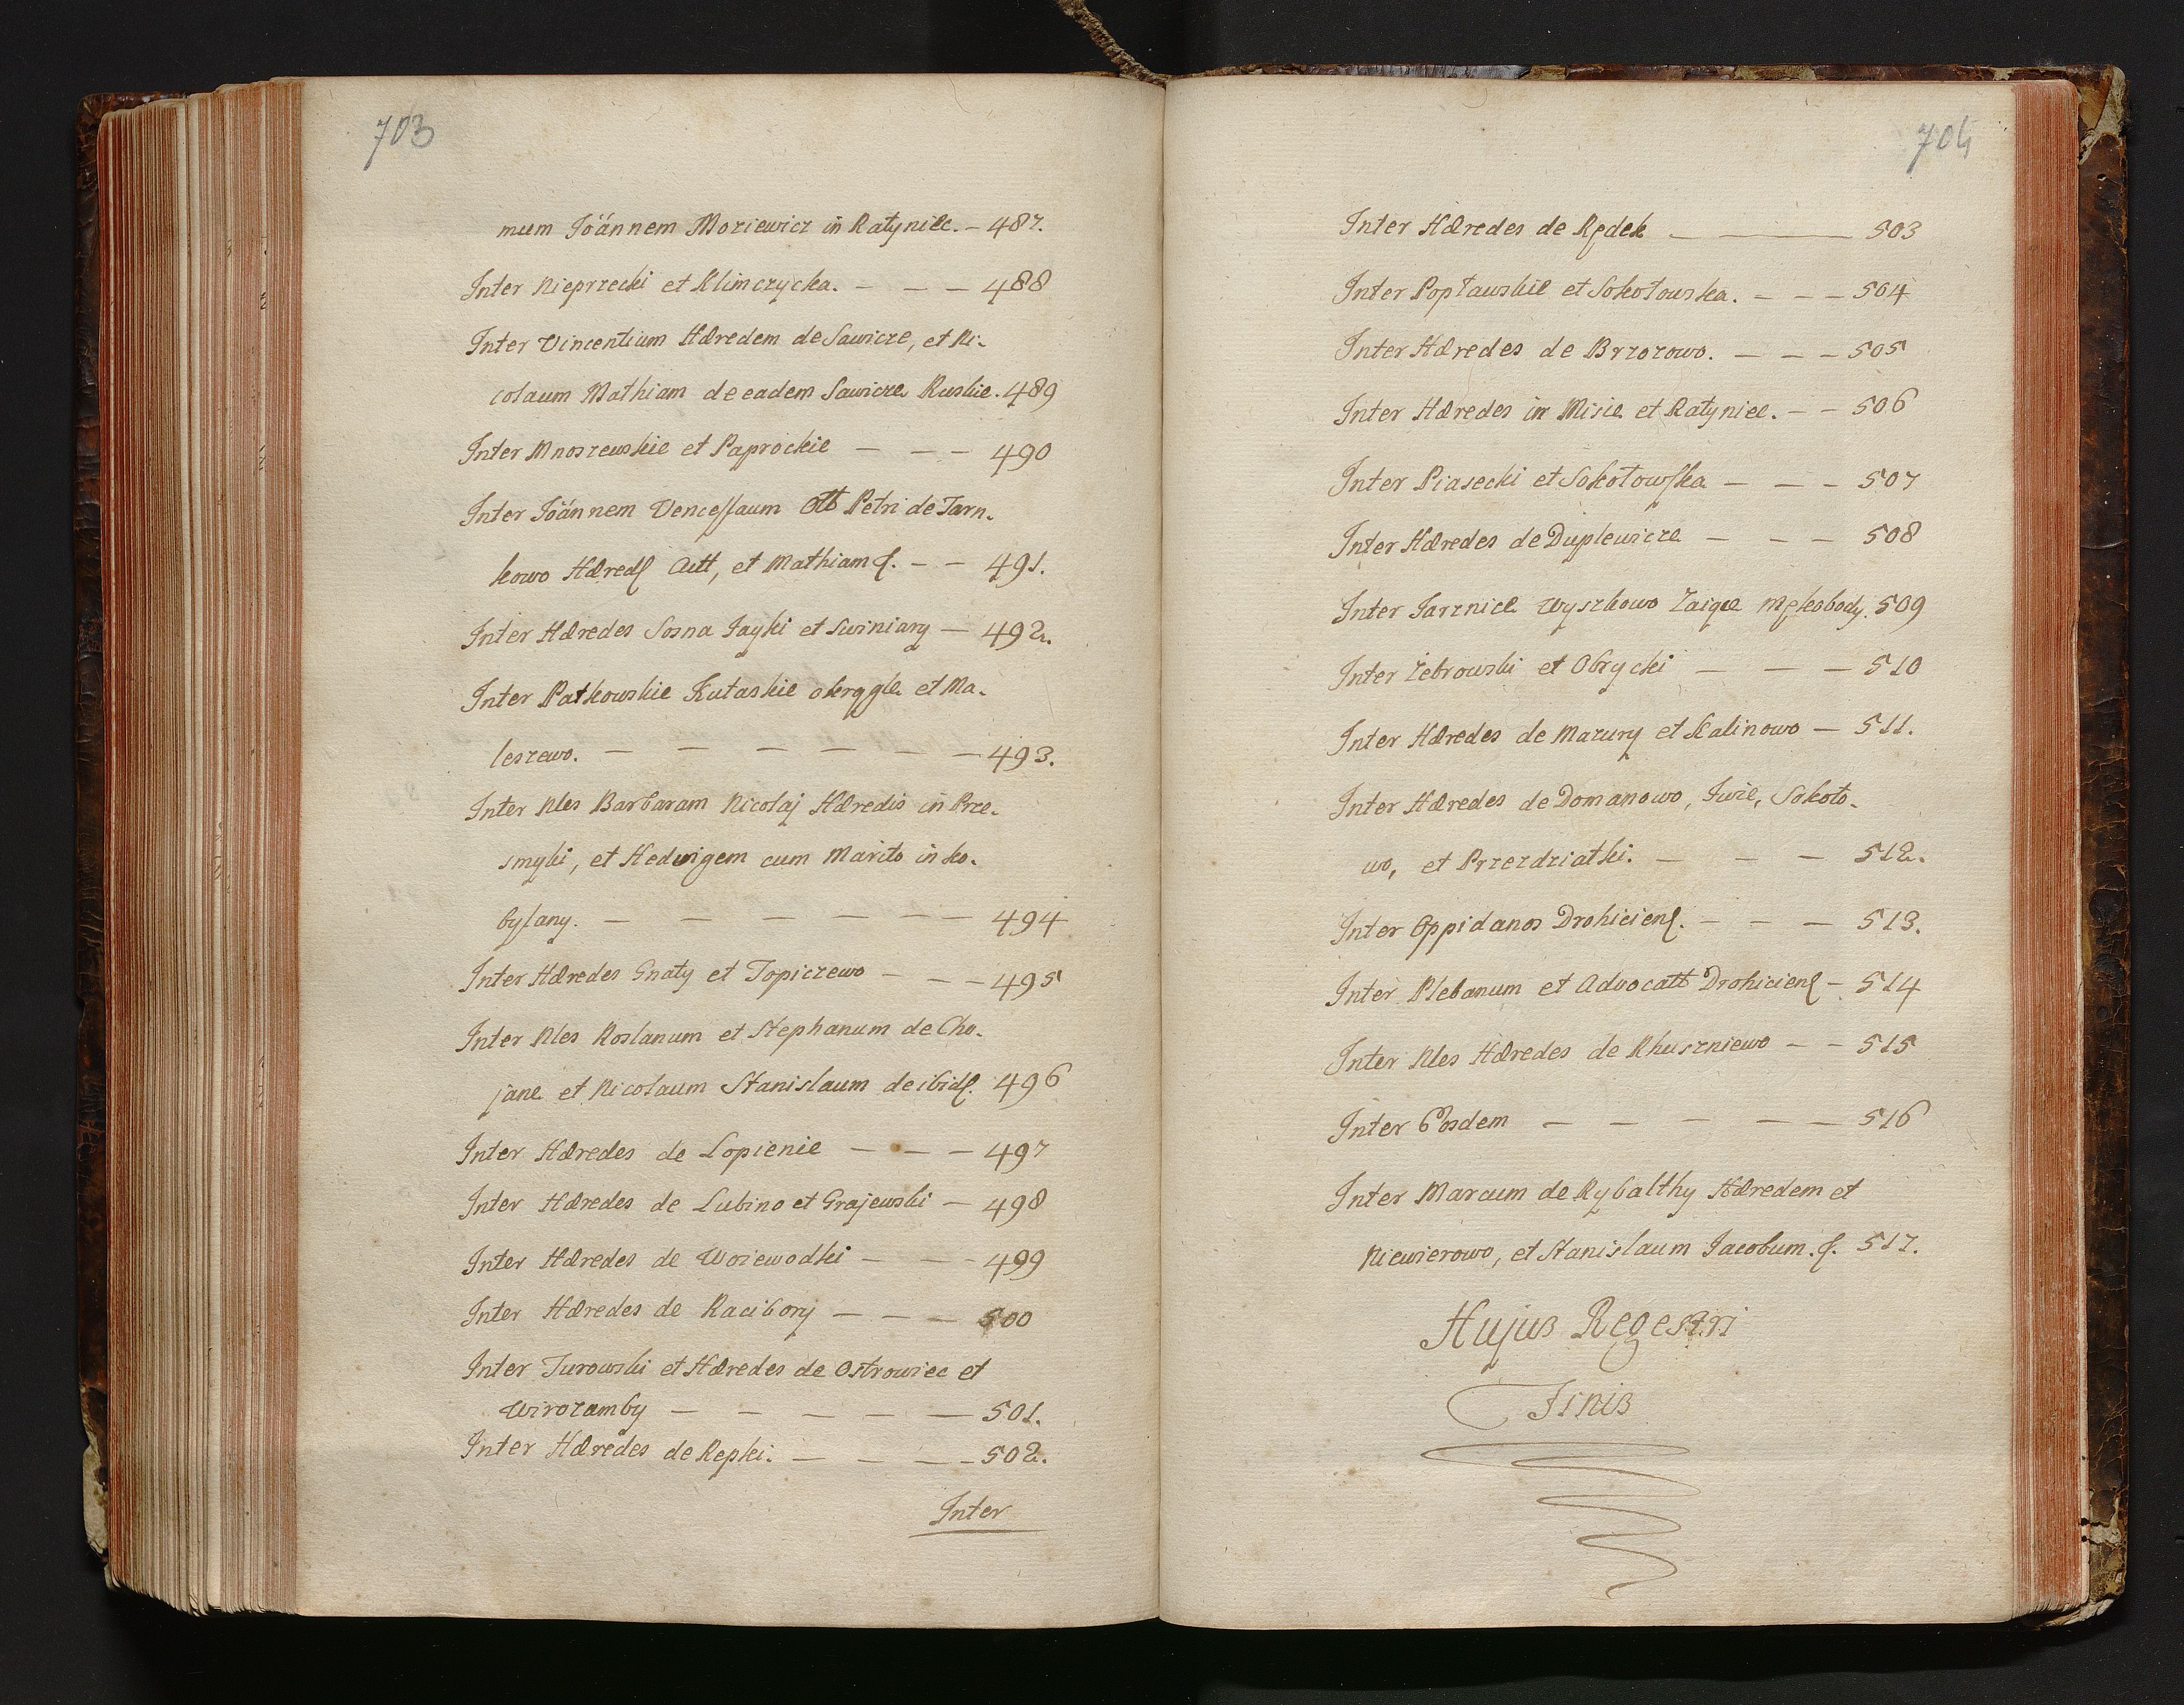 703
mum Jöánnem Moziewicz in Ratyniec. - 487.
Inter Nieprzecki et Klimczycka. - - - 488
Inter Vincentium Hæredem de Sawicze, et Ni-
colaum Mathiam de eadem Sawicze Ruskie. 489
Inter Mnoszewskie et Paprockie - - - 490
Inter Jöánnem Venceslaum Petri de Tarn-
kowo Hæred. Actt, et Mathiam - - 491.
Inter Hæredes Sosna Jayki et Swiniary - 492.
Inter Patkowskie Kutaskie okrągłe et Ma-
leszewo. - - - - - - 493.
Inter Nles Barbaram Nicolaj Hæredis in Prze-
smyki, et Hedwigem cum Marito in Ko-
byłany. - - - - - - 494
Inter Hæredes Gnaty et Topiczewo - - - 495
Inter Nles Roslanum et Stephanum de Cho-
jane et Nicolaum Stanislaum de ibid. 496
Inter Hæredes de Lopienie - - - 497
Inter Hæredes de Lubino et Grajewski - 498
Inter Hæredes de Woiewodki - - - 499
Inter Hæredes de Racibory - - - 500
Inter Turowski et Hæredes de Ostrowiec et
Wirozamby - - - - - 501.
Inter Hæredes de Repki. - - - - 502.
Inter
704
Inter Hæredes de Rędek - - 503
Inter Popławskie et Sokołowska. - - - 504
Inter Hæredes de Brzozowo. - - - 505
Inter Hæredes in Misie et Ratyniec. - - 506
Inter Piasecki et Sokołowska - - - 507
Inter Hæredes de Duplewicze - - - 508
Inter Jarznice Wyszkowo Zaięce Mękobody. 509
Inter Zebrowski et Obrycki - - - 510
Inter Hæredes de Mazury et Kalinowo - 511.
Inter Hæredes de Domanowo, Jwie, Sokoło-
wo, et Przezdziatki. - - - 512.
Inter Oppidanos Drohiciens. - - - 513.
Inter Plebanum et Advocatt Drohiciens - 514
Inter Nles Hæredes de Khuszniewo - - 515
Inter Eosdem - - - - - 516
Inter Marcum de Rybalthy Hæredem et
Niewierowo, et Stanislaum Jacobum. 517.
Hujus Regestri
Finis